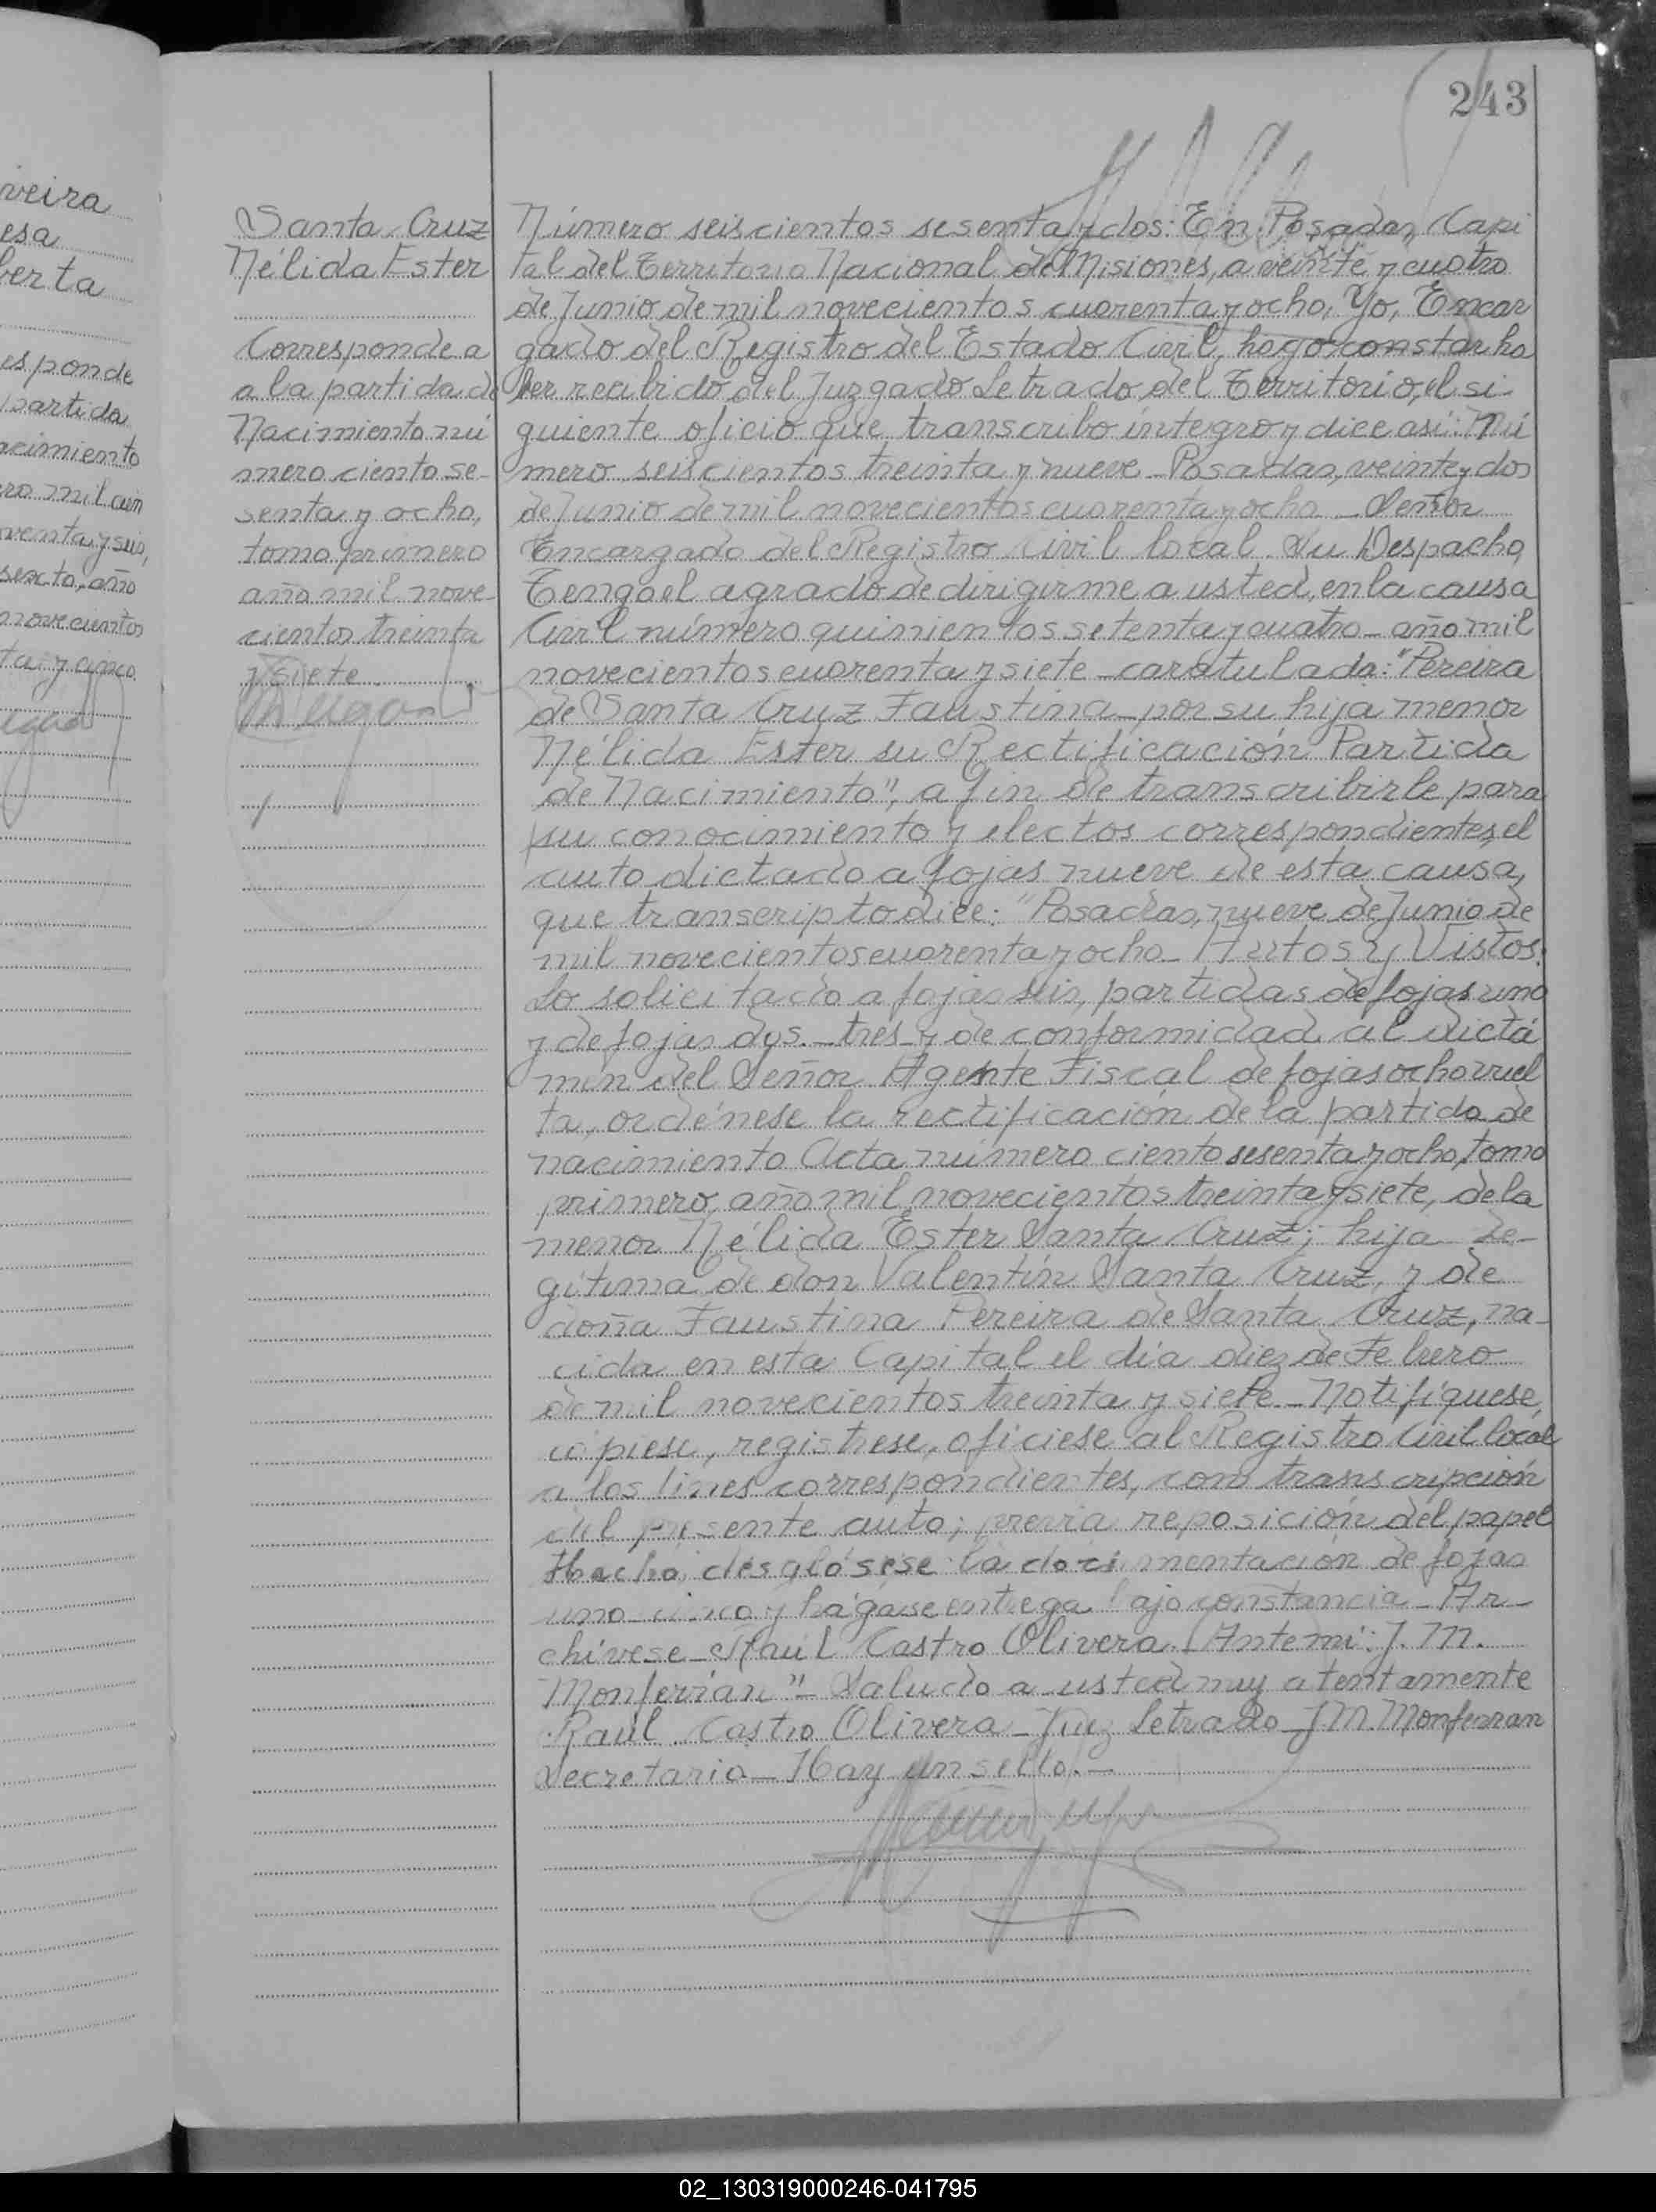 veira
esa
berta
esponde
partida
acimiento
ero mil cien
venta y seis,
sexto, año
novecientos
ta y cinco
243
Santa Cruz
Nélida Ester
Corresponde a
a la partida de
Nacimiento nú
mero ciento se-
senta y ocho,
tomo primero
año mil nove-
cientos treinta
y siete
Número seiscientos sesenta y dos: En Posadas, Capi
tal del Territorio Nacional de Misiones, a veinte y cuatro
de Junio de mil novecientos cuarenta y ocho, Yo, Encar
gado del Registro del Estado Civil, hago constar ha
ber recibido del Juzgado Letrado del Territorio, el si-
guiente oficio que transcribo íntegro y dice así: Nú
mero seiscientos treinta y nueve - Posadas, veinte y dos
de Junio de mil novecientos cuarenta y ocho - Señor
Encargado del Registro Civil local. Su Despacho,
Tengo el agrado de dirigirme a usted, en la causa
Civil número quinientos setenta y cuatro - año mil
novecientos cuarenta y siete - caratulada: "Pereira
de Santa Cruz Faustina - por su hija menor
Nélida Ester su Rectificación Partida
de Nacimiento", a fin de transcribirle para
su conocimiento y efectos correspondientes, el
auto dictado a fojas nueve de esta causa,
que transcripto dice: "Posadas, nueve de Junio de
mil novecientos cuarenta y ocho - Autos y Vistos:
Lo solicitado a fojas seis, partidas de fojas uno
y de fojas dos. - tres - y de conformidad al dictá
men del Señor Agente Fiscal de fojas ocho vuel
ta, ordénese la rectificación de la partida de
nacimiento Acta número ciento sesenta y ocho, tomo
primero, año mil novecientos treinta y siete, de la
menor Nélida Ester Santa Cruz; hija le-
gítima de don Valentín Santa Cruz, y de
doña Faustina Pereira de Santa Cruz, na-
cida en esta Capital el día diez de Febrero
de mil novecientos treinta y siete. - Notifíquese,
cópiese, regístrese, ofíciese al Registro Civil local
a los fines correspondientes, con transcripción
del presente auto; previa reposición del papel
Hecho desglósese la documentación de fojas
uno - cinco y hágase entrega bajo constancia - Ar-
chívese - Raúl Castro Olivera. - Ante mi: J. M.
Monferrán" - Saludo a usted muy atentamente
Raúl Castro Olivera - Juez Letrado - J.M. Monferran
Secretario - Hay un sello. -
02_130319000246-041795